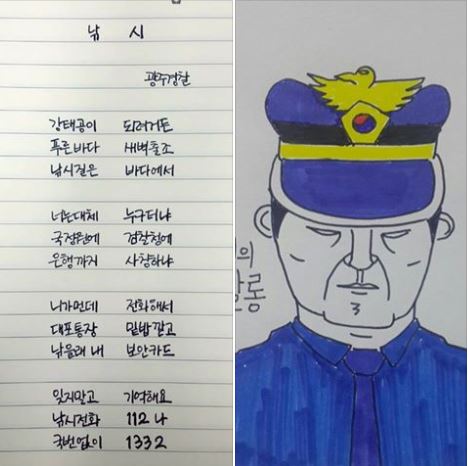 낚 시
광주경찰
강태공이 되려거든
푸른바다 새벽출조
낚시질은 바다에서
너는대체 누구더냐
국정원에 검찰청에
은행까지 사칭하냐
니가먼데 전화해서
대포통장 밑밥깔고
낚을래 내 보안카드
잊지말고 기억해요
낚시전화 112 나
국번없이 1332
의
롱